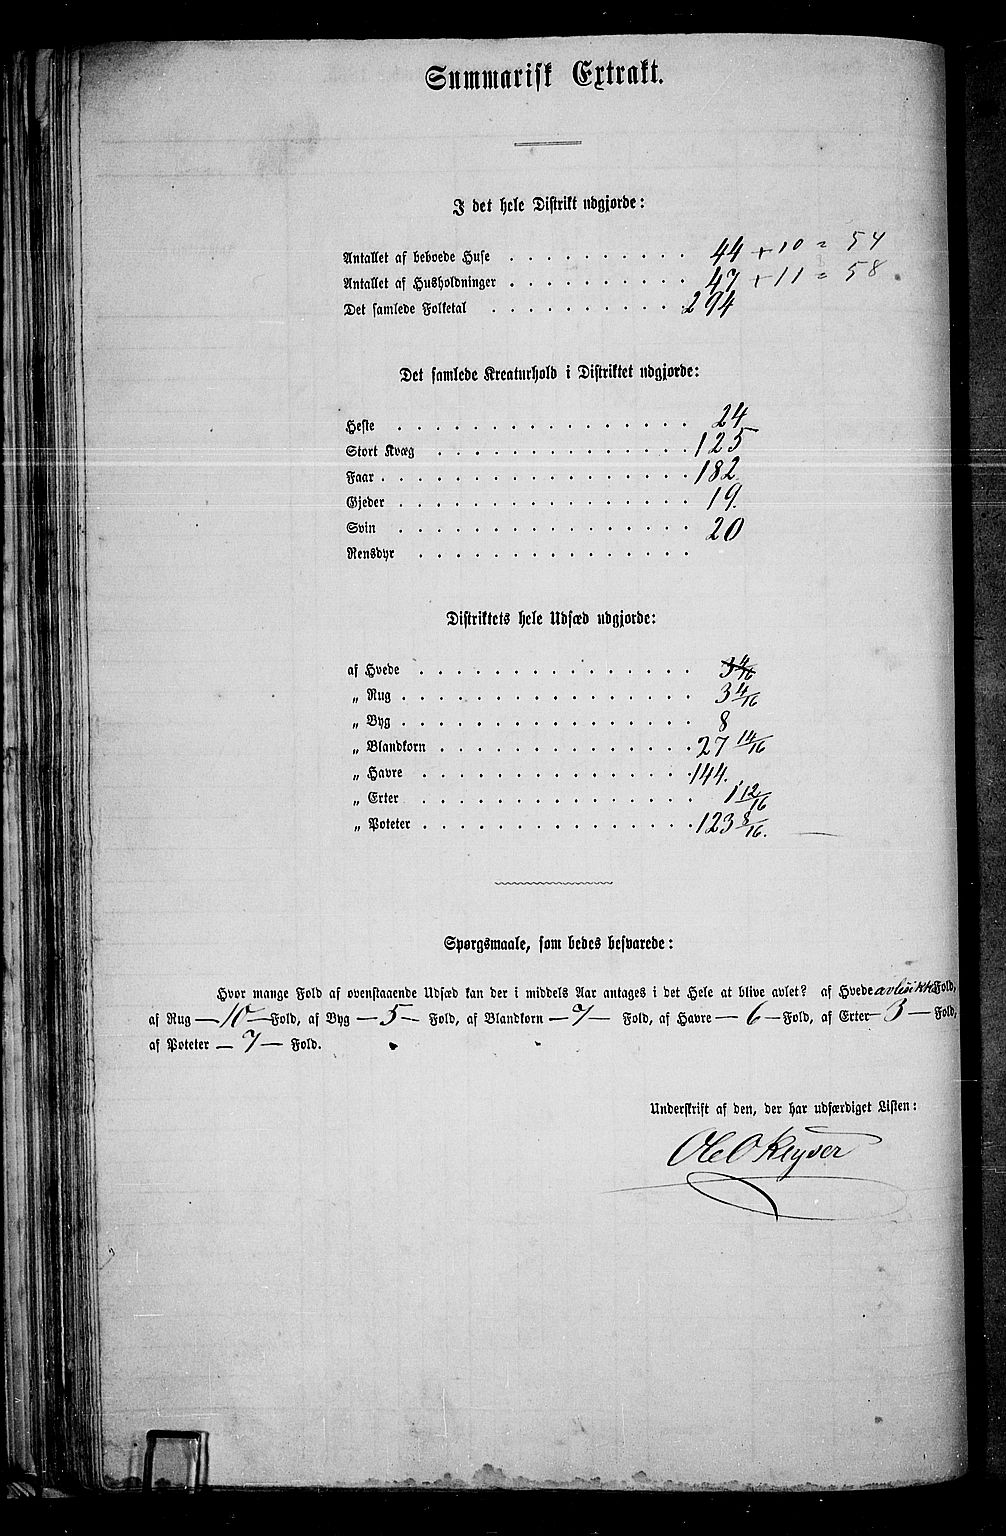 Summarisk Extrakt.
I det hele Distrikt udgjorde:
Antallet af beboede Huse . . . . . . . . . . 44 + 10 = 54
Antallet af Husholdninger . . . . . . . . . . 47 + 11 = 58
Det samlede Folketal . . . . . . . . . . . 294
Det samlede Kreaturhold i Distriktet udgjorde:
Heste . . . . . . . . . . . . . . . . 24
Stort Kvæg . . . . . . . . . . . . . . 125
Faar . . . . . . . . . . . . . . . . . 182
Gjeder . . . . . . . . . . . . . . . . 19.
Svin . . . . . . . . . . . . . . . . 20
Rensdyr . . . . . . . . . . . . . . .
Distriktets hele Udsæd udgjorde:
af Hvede . . . . . . . . . . . . . . . 3 4/16
„ Rug . . . . . . . . . . . . . . . . 3 4/16
„ Byg . . . . . . . . . . . . . . . . 8
„ Blandkorn . . . . . . . . . . . . . . 27 14/16
„ Havre . . . . . . . . . . . . . . . 144.
„ Erter . . . . . . . . . . . . . . . 1 12/16
„ Poteter . . . . . . . . . . . . . . . 123 8/16.
Spørgsmaale, som bedes besvarede:
Hvor mange Fold af ovenstaaende Udsæd kan der i middels Aar antages i det Hele at blive avlet? af Hvede avles ikke Fold,
af Rug — 10 — Fold, af Byg — 5 — Fold, af Blandkorn — 7 — Fold, af Havre — 6 — Fold, af Erter — 3 — Fold,
af Poteter — 7 — Fold.
Underskrift af den, der har udfærdiget Listen:
Ole O Keyser